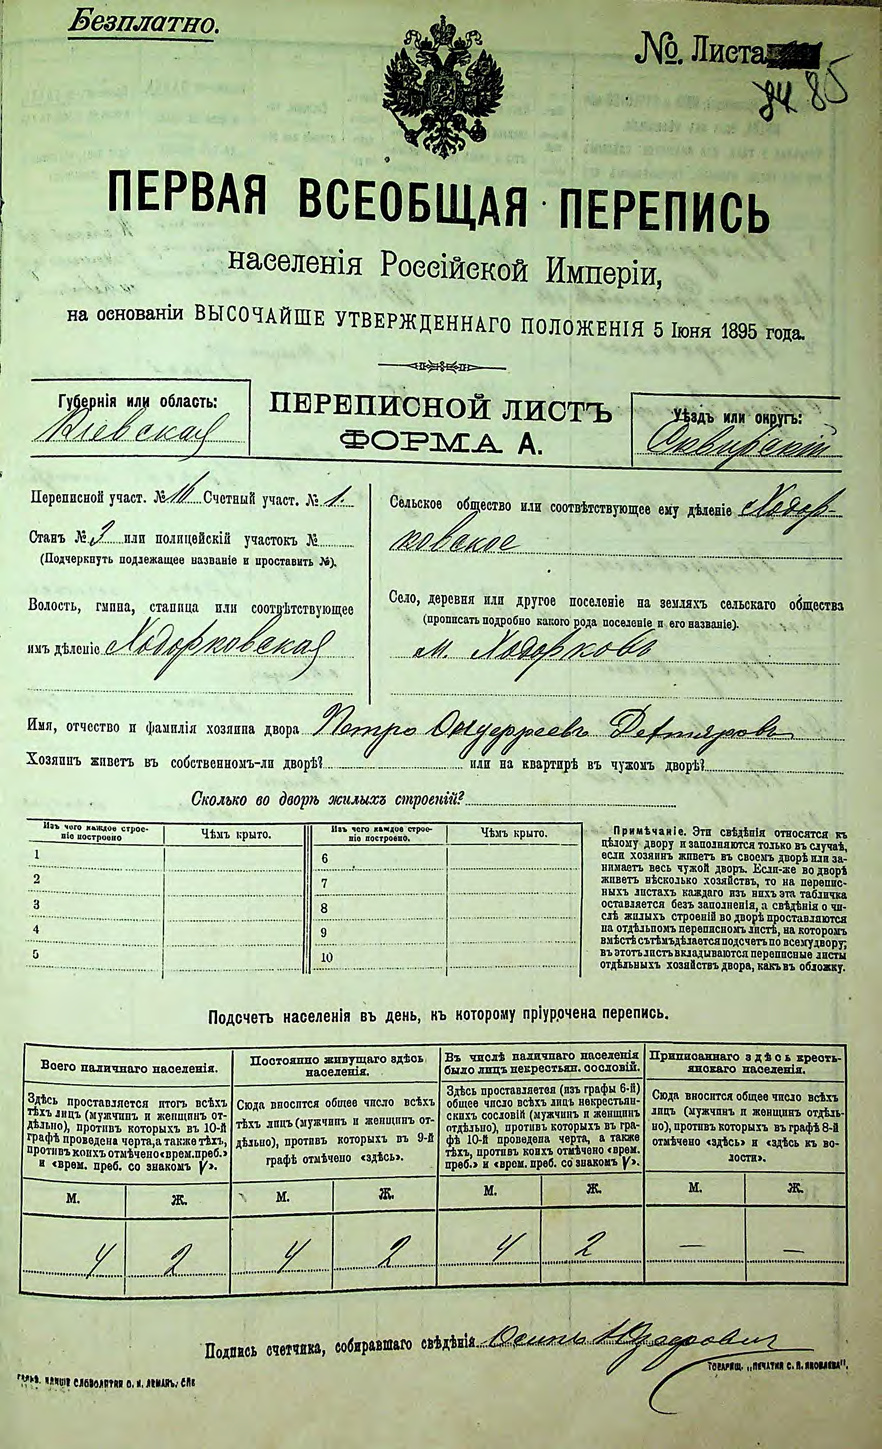 Безплатно.
№. Листа
84 85
ПЕРВАЯ ВСЕОБЩАЯ ПЕРЕПИСЬ
населенія Россійской Имперіи,
на основаніи ВЫСОЧАЙШЕ УТВЕРЖДЕННАГО ПОЛОЖЕНІЯ 5 Іюня 1895 года.
Губернія или область:
Кіевская
ПЕРЕПИСНОЙ ЛИСТЪ
ФОРМА А.
Уѣздъ или округъ:
Сквирскій
Переписной участ. № 16 Счетный участ. № 1.
Станъ № 2 или полицейскій участокъ №
(Подчеркнуть подлежащее названіе и проставить №).
Волость, гмина, станица или соотвѣтствующее
имъ дѣленіе Ходорковская
Сельское общество или соотвѣтствующее ему дѣленіе Ходор-
ковское
Село, деревня или другое поселеніе на земляхъ сельскаго общества
(прописать подробно какого рода поселеніе и его названіе).
м. Ходорковъ
Имя, отчество и фамилія хозяина двора Петро
Хозяинъ живетъ въ собственномъ-ли дворѣ? или на квартирѣ въ чужомъ дворѣ?
Сколько во дворѣ жилыхъ строеній?
Изъ чего каждое строе-
ніе построено
Чѣмъ крыто.
1
2
3
4
5
Изъ чего каждое строе-
ніе построено.
Чѣмъ крыто.
6
7
8
9
10
Примѣчаніе. Эти свѣдѣнія относятся къ
цѣлому двору и заполняются только въ случаѣ,
если хозяинъ живетъ въ своемъ дворѣ или за-
нимаетъ весь чужой дворъ. Если-же во дворѣ
живетъ нѣсколько хозяйствъ, то на перепис-
ныхъ листахъ каждаго изъ нихъ эта табличка
оставляется безъ заполненія, а свѣдѣнія о чи-
слѣ жилыхъ строеній во дворѣ проставляются
на отдѣльномъ переписномъ листѣ, на которомъ
вмѣстѣ съ тѣмъ дѣлается подсчетъ по всему двору;
въ этотъ листъ вкладываются переписные листы
отдѣльныхъ хозяйствъ двора, какъ въ обложку.
Подсчетъ населенія въ день, къ которому пріурочена перепись.
Всего наличнаго населенія.
Здѣсь проставляется итогъ всѣхъ
тѣхъ лицъ (мужчинъ и женщинъ от-
дѣльно), противъ которыхъ въ 10-й
графѣ проведена черта, а также тѣхъ,
противъ коихъ отмѣчено «врем. преб.»
и «врем. преб. со знакомъ V».
М. Ж.
4 2
Постоянно живущаго здѣсь
населенія.
Сюда вносится общее число всѣхъ
тѣхъ лицъ (мужчинъ и женщинъ от-
дѣльно), противъ которыхъ въ 9-й
графѣ отмѣчено «здѣсь».
М. Ж.
4 2
Въ числѣ наличнаго населенія
было лицъ некрестьян. сословій.
Здѣсь проставляется (изъ графы 6-й)
общее число всѣхъ лицъ некрестьян-
скихъ сословій (мужчинъ и женщинъ
отдѣльно), противъ которыхъ въ гра-
фѣ 10-й проведена черта, а также
тѣхъ, противъ коихъ отмѣчено «врем.
преб.» и «врем. преб. со знакомъ V».
М. Ж.
4 2
Приписаннаго здѣсь кресть-
янскаго населенія.
Сюда вносится общее число всѣхъ
лицъ (мужчинъ и женщинъ отдѣль-
но), противъ которыхъ въ графѣ 8-й
отмѣчено «здѣсь» и «здѣсь къ во-
лости».
М. Ж.
— —
Подпись счетчика, собиравшаго свѣдѣнія Осипъ
ТОВАРИЩ. „ПЕЧАТНЯ С. П. ЯКОВЛЕВА".
СЛОВОЛИТНИ О. И. ЛЕМАНЪ, СПБ